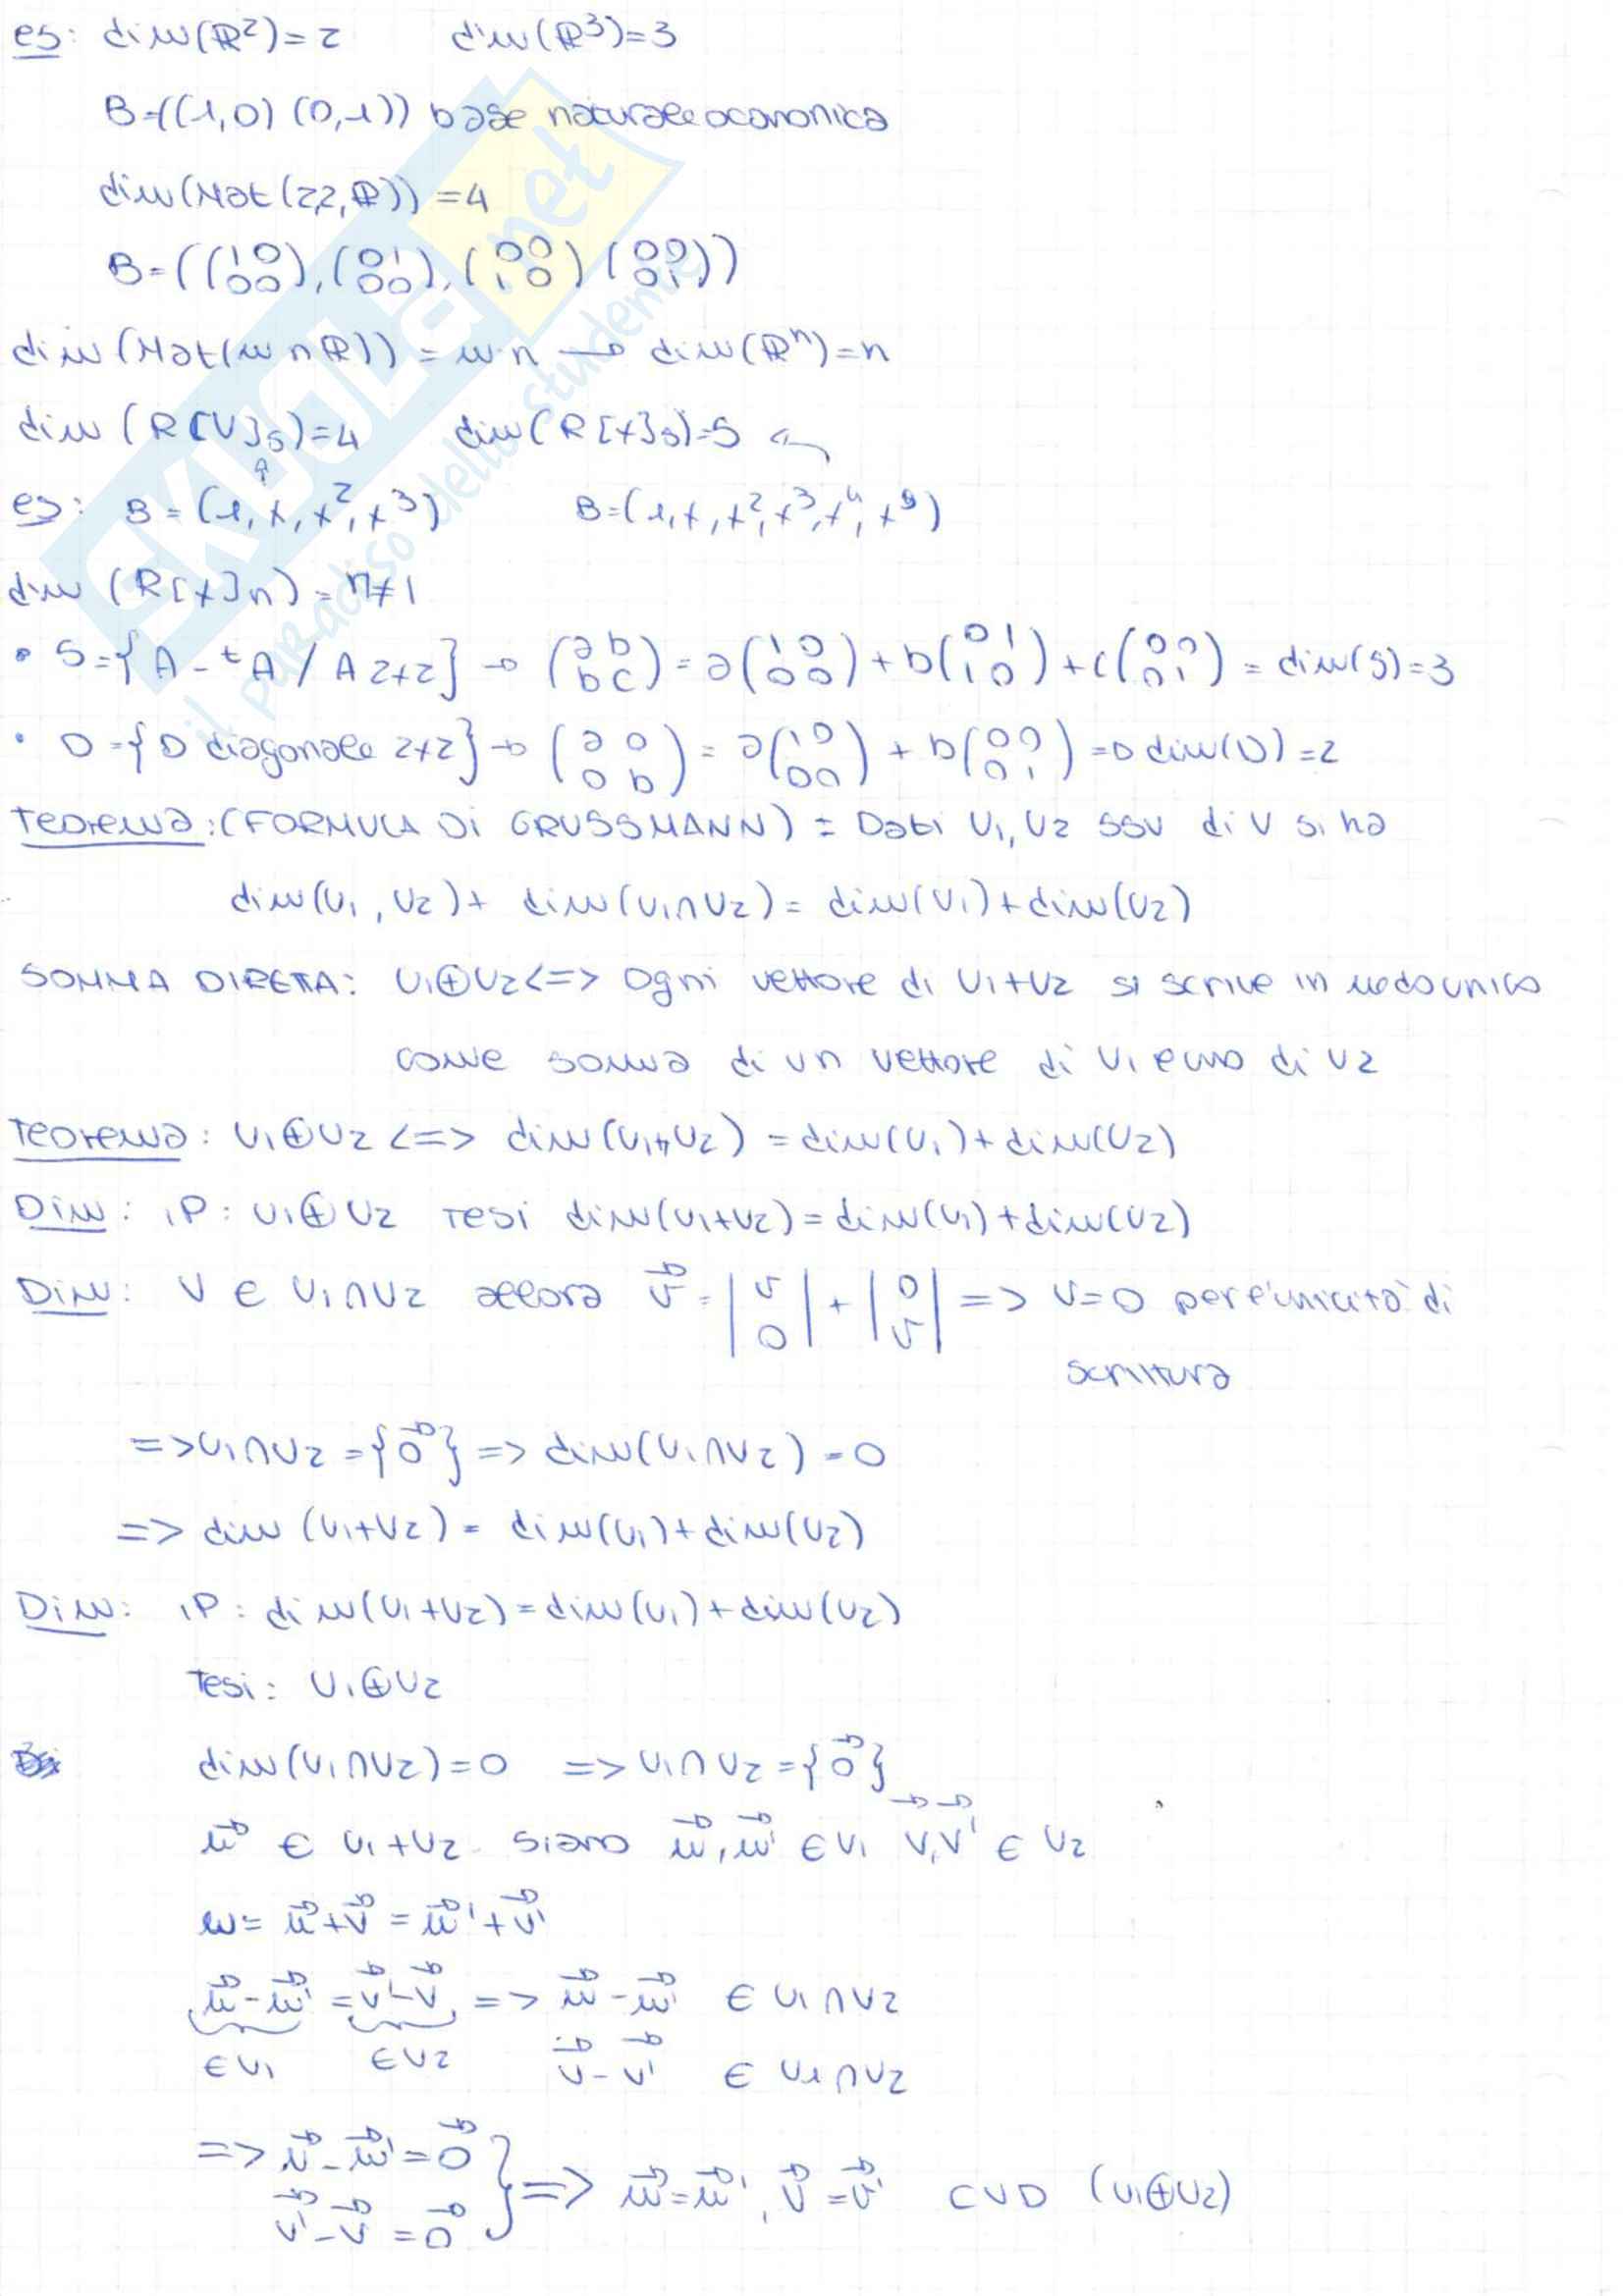 es: dim(ℝ²)=2 dim(ℝ³)=3
B=((1,0) (0,1)) base naturale o canonica
dim(Mat(2,2,ℝ))=4
B=((1 0 / 0 0),(0 1 / 0 0),(0 0 / 1 0)(0 0 / 0 1))
dim(Mat(m n ℝ))=m·n → dim(ℝⁿ)=n
dim(R[V]₅)=4 dim(R[x]₅)=5
es: B=(1,x,x²,x³) B=(1,x,x²,x³,x⁴,x⁵)
dim(R[x]n)=n+1
• S={A-ᵗA / A 2x2} → (a b / b c)=a(1 0 / 0 0)+b(0 1 / 1 0)+c(0 0 / 0 1)=dim(S)=3
• D={D diagonale 2x2} → (a 0 / 0 b)=a(1 0 / 0 0)+b(0 0 / 0 1)=D dim(D)=2
Teorema:(FORMULA Di GRUSSMANN)= Dati U₁,U₂ SSV di V si ha
dim(U₁,U₂)+dim(U₁∩U₂)=dim(U₁)+dim(U₂)
SOMMA DIRETTA: U₁⊕U₂<=> Ogni vettore di U₁+U₂ si scrive in modo unico
come somma di un vettore di U₁ e uno di U₂
Teorema: U₁⊕U₂ <=> dim(U₁+U₂)=dim(U₁)+dim(U₂)
Dim: iP: U₁⊕U₂ Tesi dim(U₁+U₂)=dim(U₁)+dim(U₂)
Dim: V ∈ U₁∩U₂ allora v⃗=|v / 0|+|0 / v| => v=0 per l'unicità di
scrittura
=>U₁∩U₂={0⃗}=>dim(U₁∩U₂)=0
=>dim(U₁+U₂)=dim(U₁)+dim(U₂)
Dim: iP: dim(U₁+U₂)=dim(U₁)+dim(U₂)
Tesi: U₁⊕U₂
dim(U₁∩U₂)=0 =>U₁∩U₂={0⃗}
w⃗ ∈ U₁+U₂ siano u⃗,u⃗' ∈U₁ v⃗,v⃗' ∈ U₂
w=u⃗+v⃗=u⃗'+v⃗'
u⃗-u⃗'=v⃗'-v⃗ => u⃗-u⃗' ∈ U₁∩U₂
∈U₁ ∈U₂ v⃗-v⃗' ∈ U₁∩U₂
=>u⃗-u⃗'=0⃗
v⃗'-v⃗=0⃗ }=> u⃗=u⃗', v⃗=v⃗' CVD (U₁⊕U₂)
SKUOLA.net
il paradiso dello studente